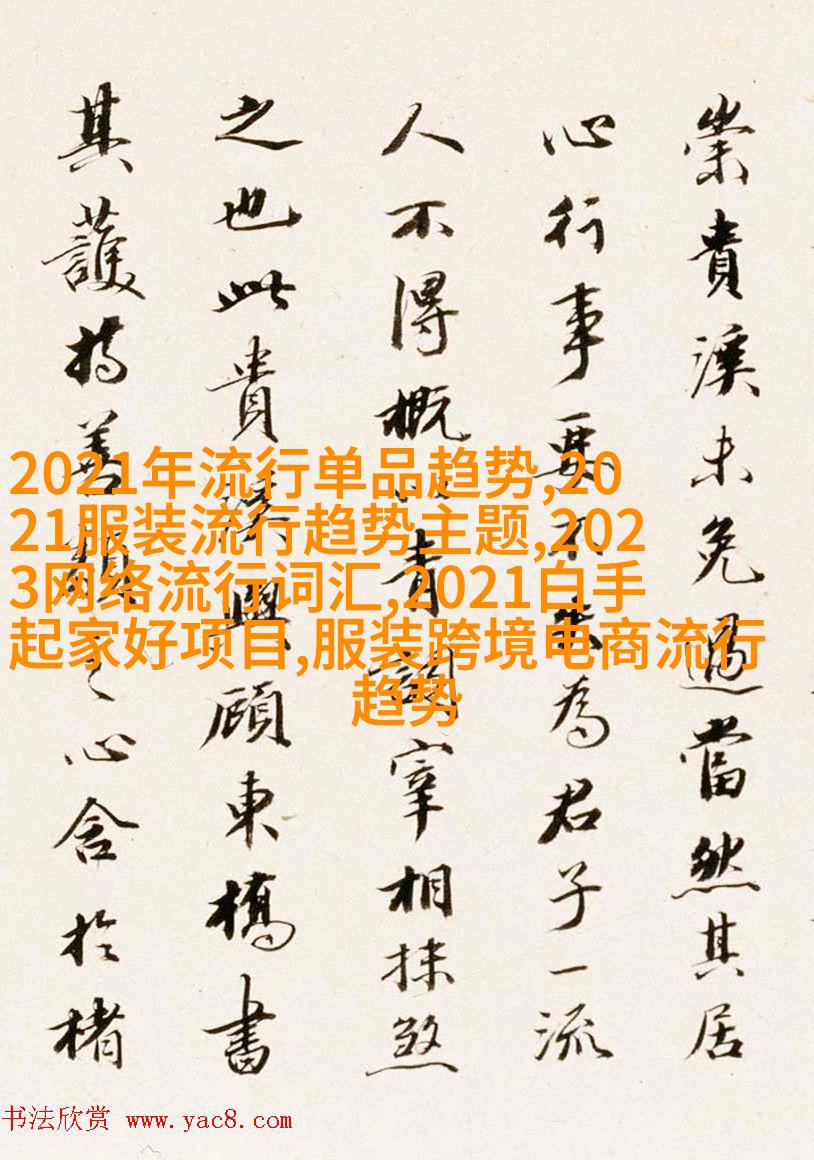 崇貴溪未免過當然其居
心行事要不失為君子一流
人不得概以青詞宰相抹煞
之也此貴溪與顧東橋書
其護持善類之心含於楮
2021年流行单品趋势,20
21服装流行趋势主题,202
3网络流行词汇,2021白手
起家好项目,服装跨境电商流行
趋势
书法欣赏 www.yac8.com